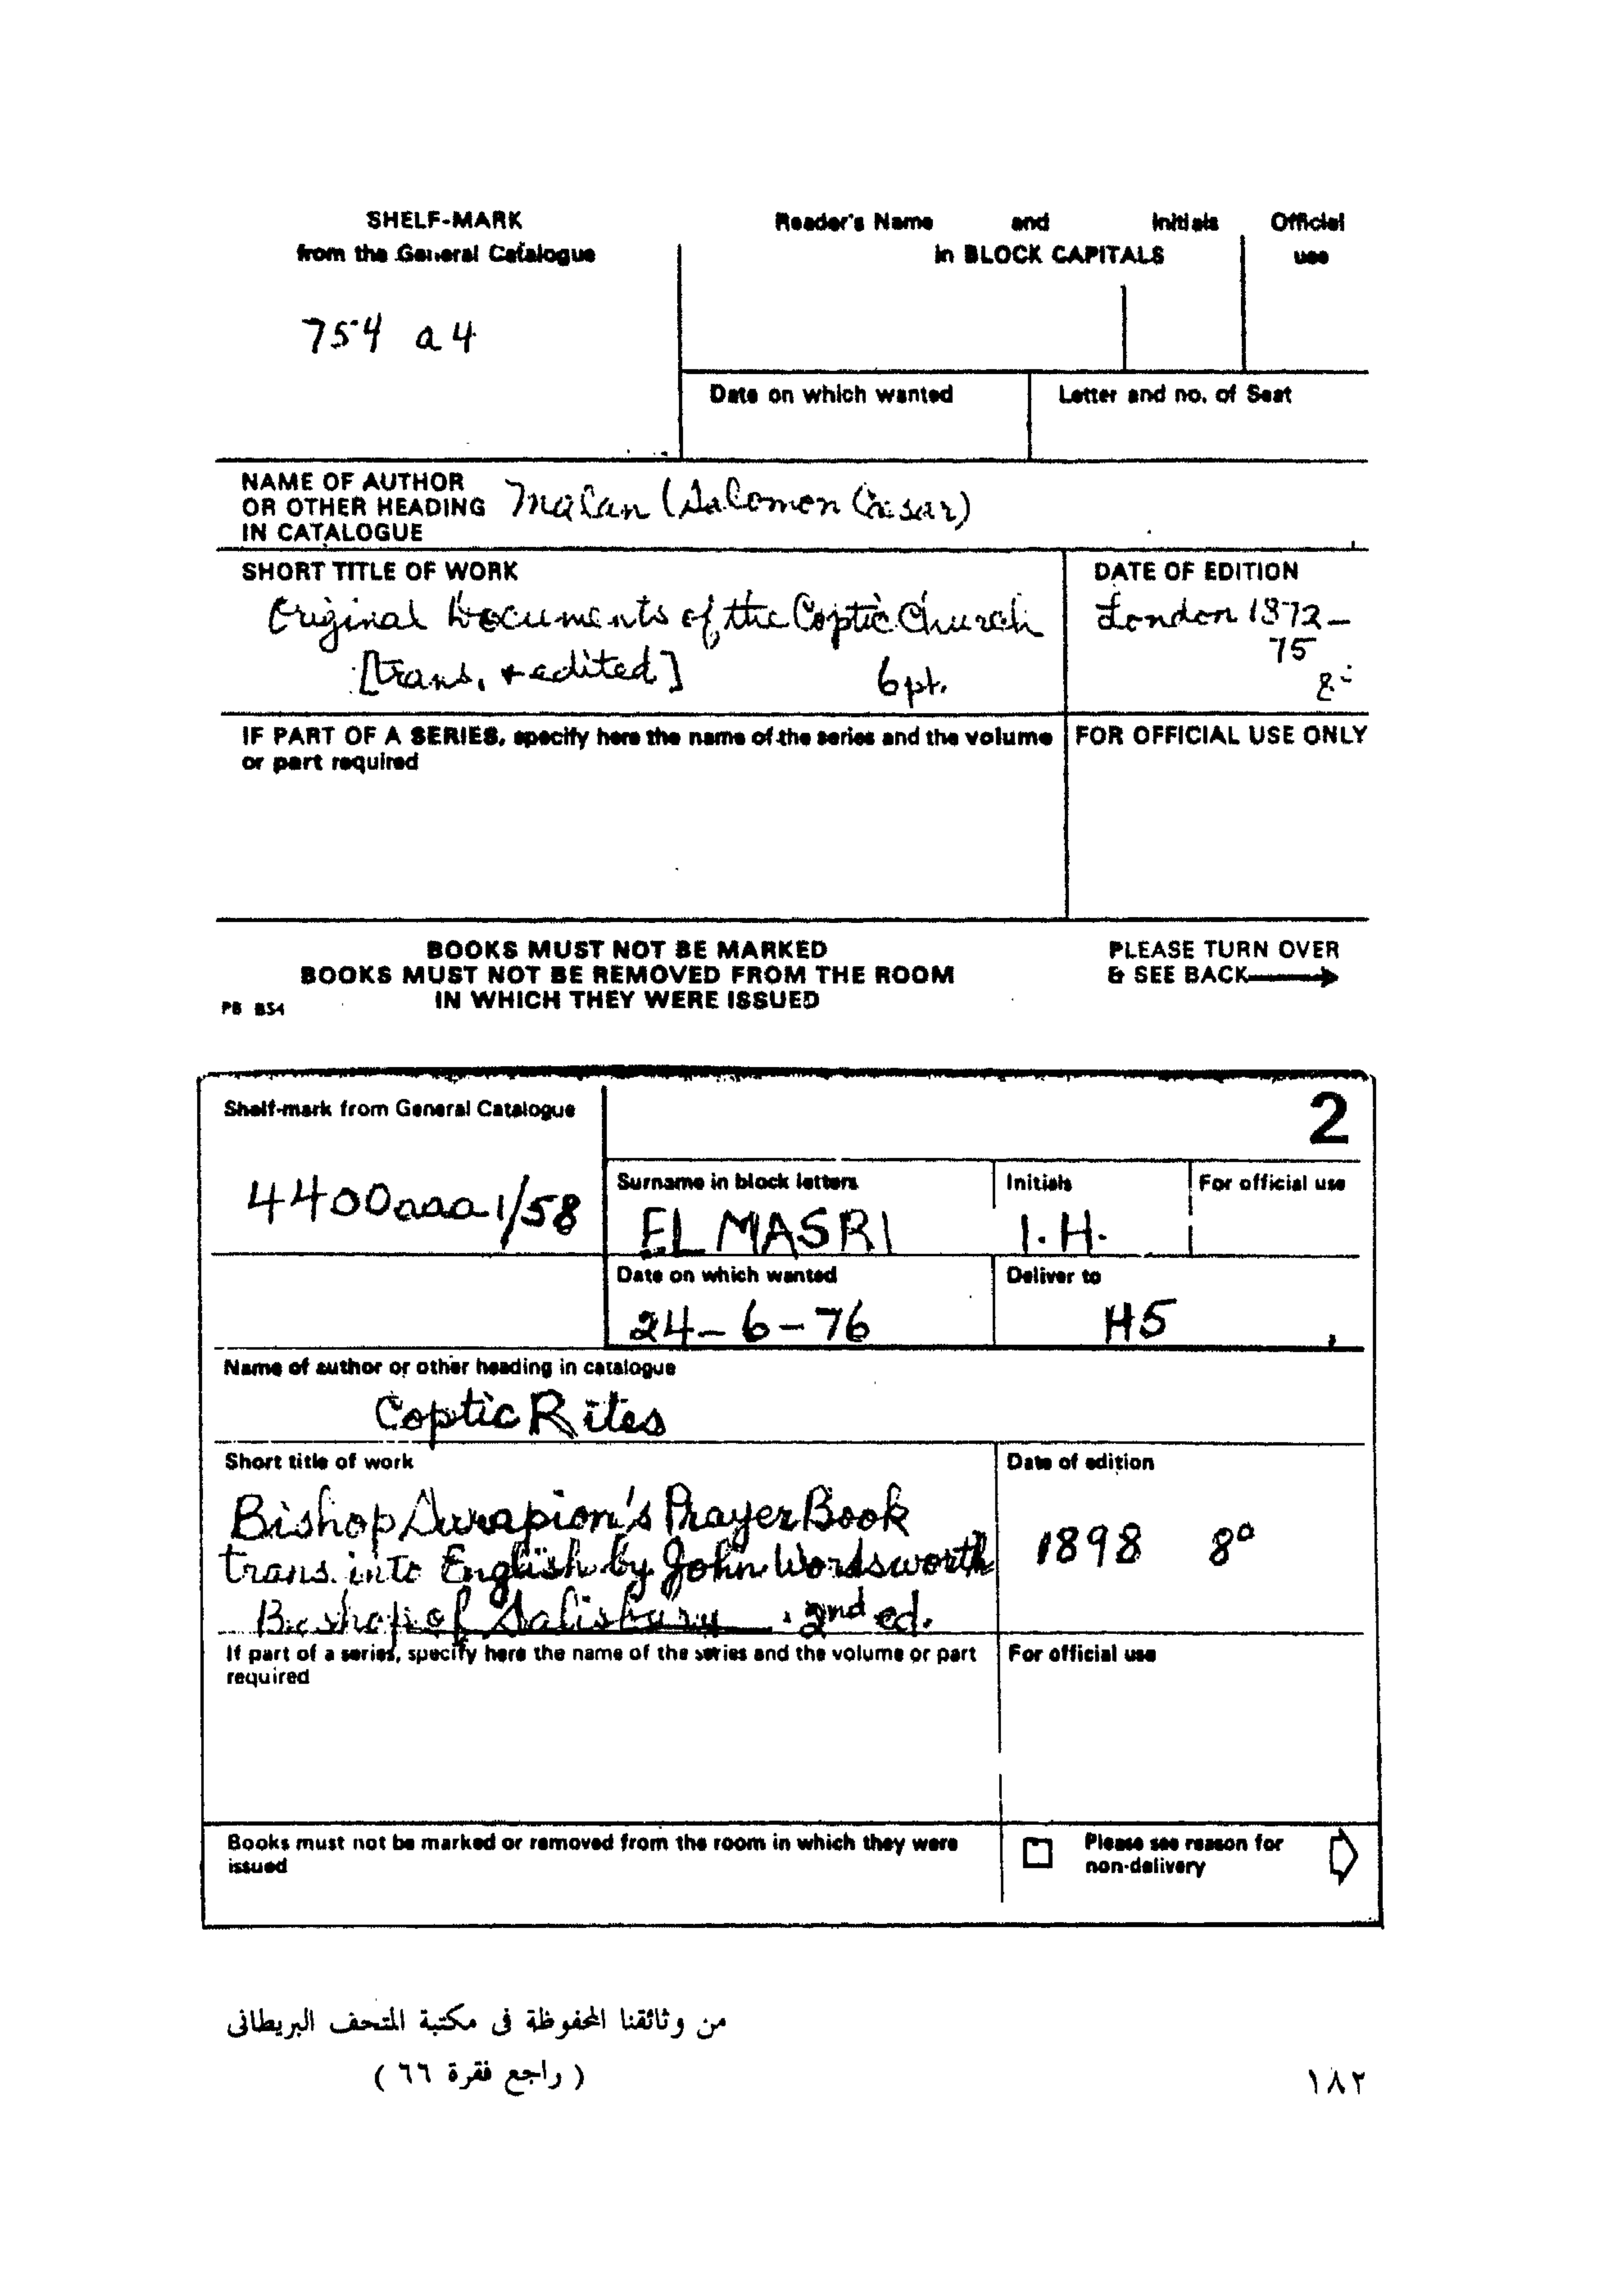 SHELF-MARK
from the General Catalogue
754 a 4
Reader's Name and Initials
in BLOCK CAPITALS
Official
use
Date on which wanted
Letter and no. of Seat
NAME OF AUTHOR
OR OTHER HEADING
IN CATALOGUE
Malan (Salomon Caesar)
SHORT TITLE OF WORK
Original Documents of the Coptic Church
[trans. + edited] 6 pt.
DATE OF EDITION
London 1872-
75
8º
IF PART OF A SERIES, specify here the name of the series and the volume
or part required
FOR OFFICIAL USE ONLY
BOOKS MUST NOT BE MARKED
BOOKS MUST NOT BE REMOVED FROM THE ROOM
IN WHICH THEY WERE ISSUED
PLEASE TURN OVER
& SEE BACK
PB B54
2
Shelf-mark from General Catalogue
4400aaa1/58
Surname in block letters
EL MASRI
Initials
I. H.
For official use
Date on which wanted
24-6-76
Deliver to
H5
Name of author or other heading in catalogue
Coptic Rites
Short title of work
Bishop Sarapion's Prayer Book
trans. into English by John Wordsworth
Bishop of Salisbury. 2nd ed.
Date of edition
1898 8º
If part of a series, specify here the name of the series and the volume or part
required
For official use
Books must not be marked or removed from the room in which they were
issued
Please see reason for
non-delivery
من وثائقنا المحفوظة فى مكتبة المتحف البريطانى
( راجع فقرة ٦٦ )
١٨٢